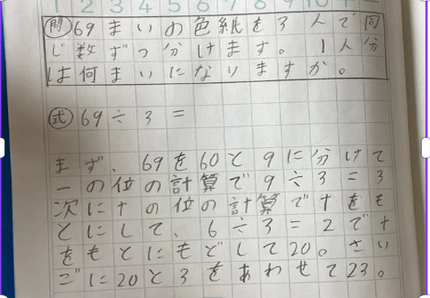 1 2 3 4 5 6 7 8 9 10
問 69まいの色紙を3人で同
じ数ずつ分けます。1人分
は何まいになりますか。
式 69÷3=
まず、69を60と9に分けて
一の位の計算で9÷3=3
次に十の位の計算で十をも
とにして、6÷3=2で十
をもとにもどして20。さい
ごに20と3をあわせて23。